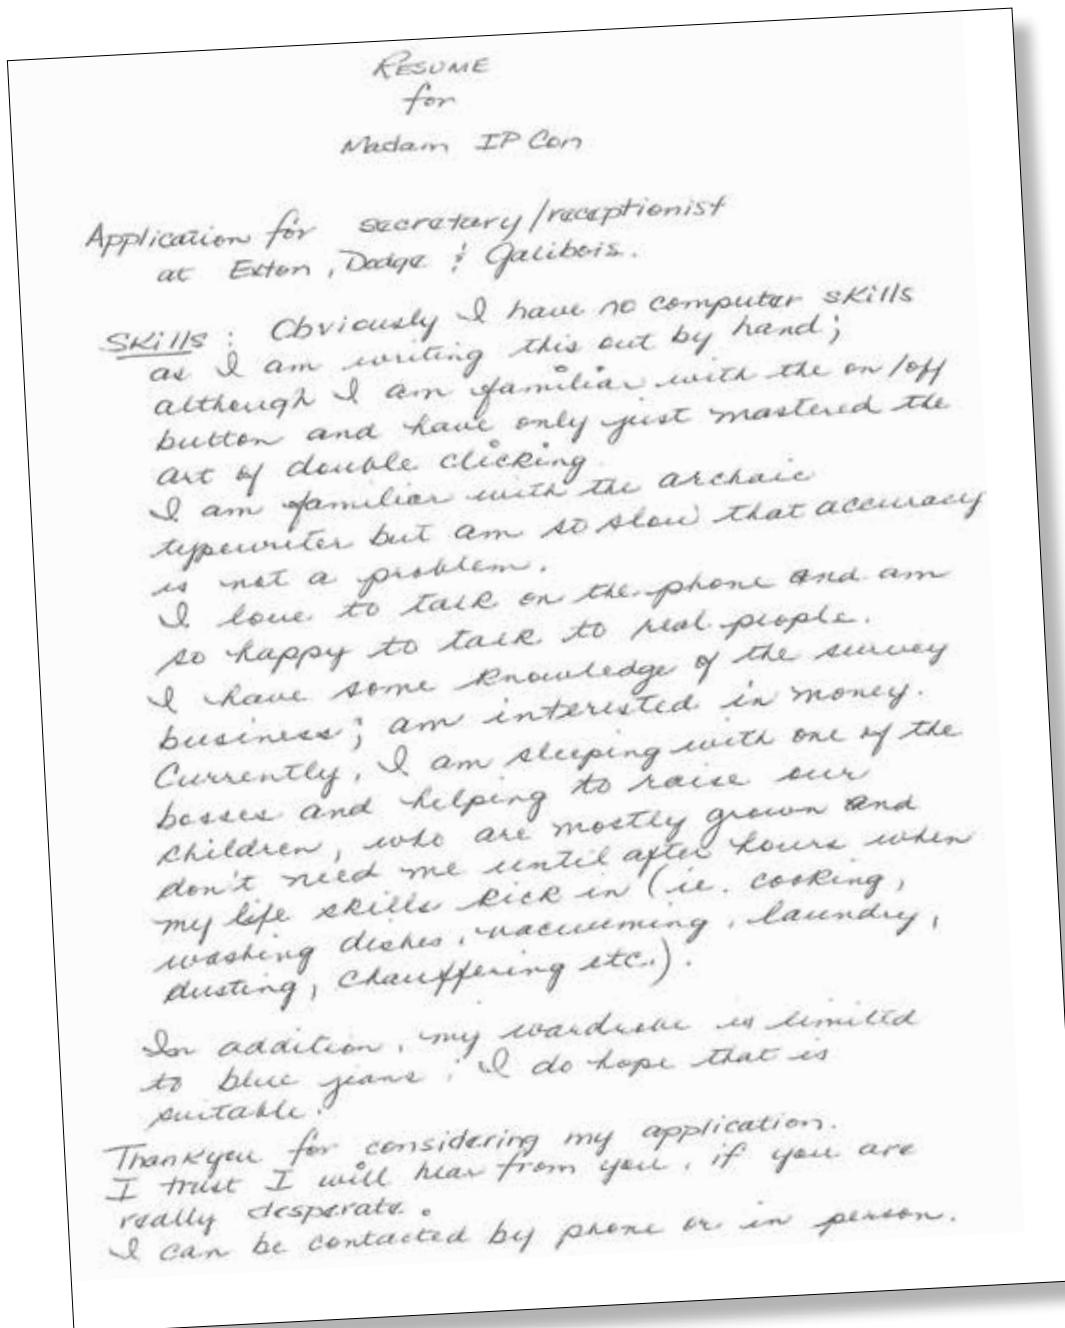 RESUME
for
Madam IP Con
Application for secretary/receptionist
at Exton, Dodge & Galibois.
Skills: Obviously I have no computer skills
as I am writing this out by hand;
although I am familiar with the on/off
button and have only just mastered the
art of double clicking
I am familiar with the archaic
typewriter but am so slow that accuracy
is not a problem.
I love to talk on the phone and am
so happy to talk to real people.
I have some knowledge of the survey
business; am interested in money.
Currently, I am sleeping with one of the
bosses and helping to raise our
children, who are mostly grown and
don't need me until after hours when
my life skills kick in (ie. cooking,
washing dishes, vacuuming, laundry,
dusting, chauffering etc.).
In addition, my wardrobe is limited
to blue jeans; I do hope that is
suitable.
Thankyou for considering my application.
I trust I will hear from you, if you are
really desperate.
I can be contacted by phone or in person.